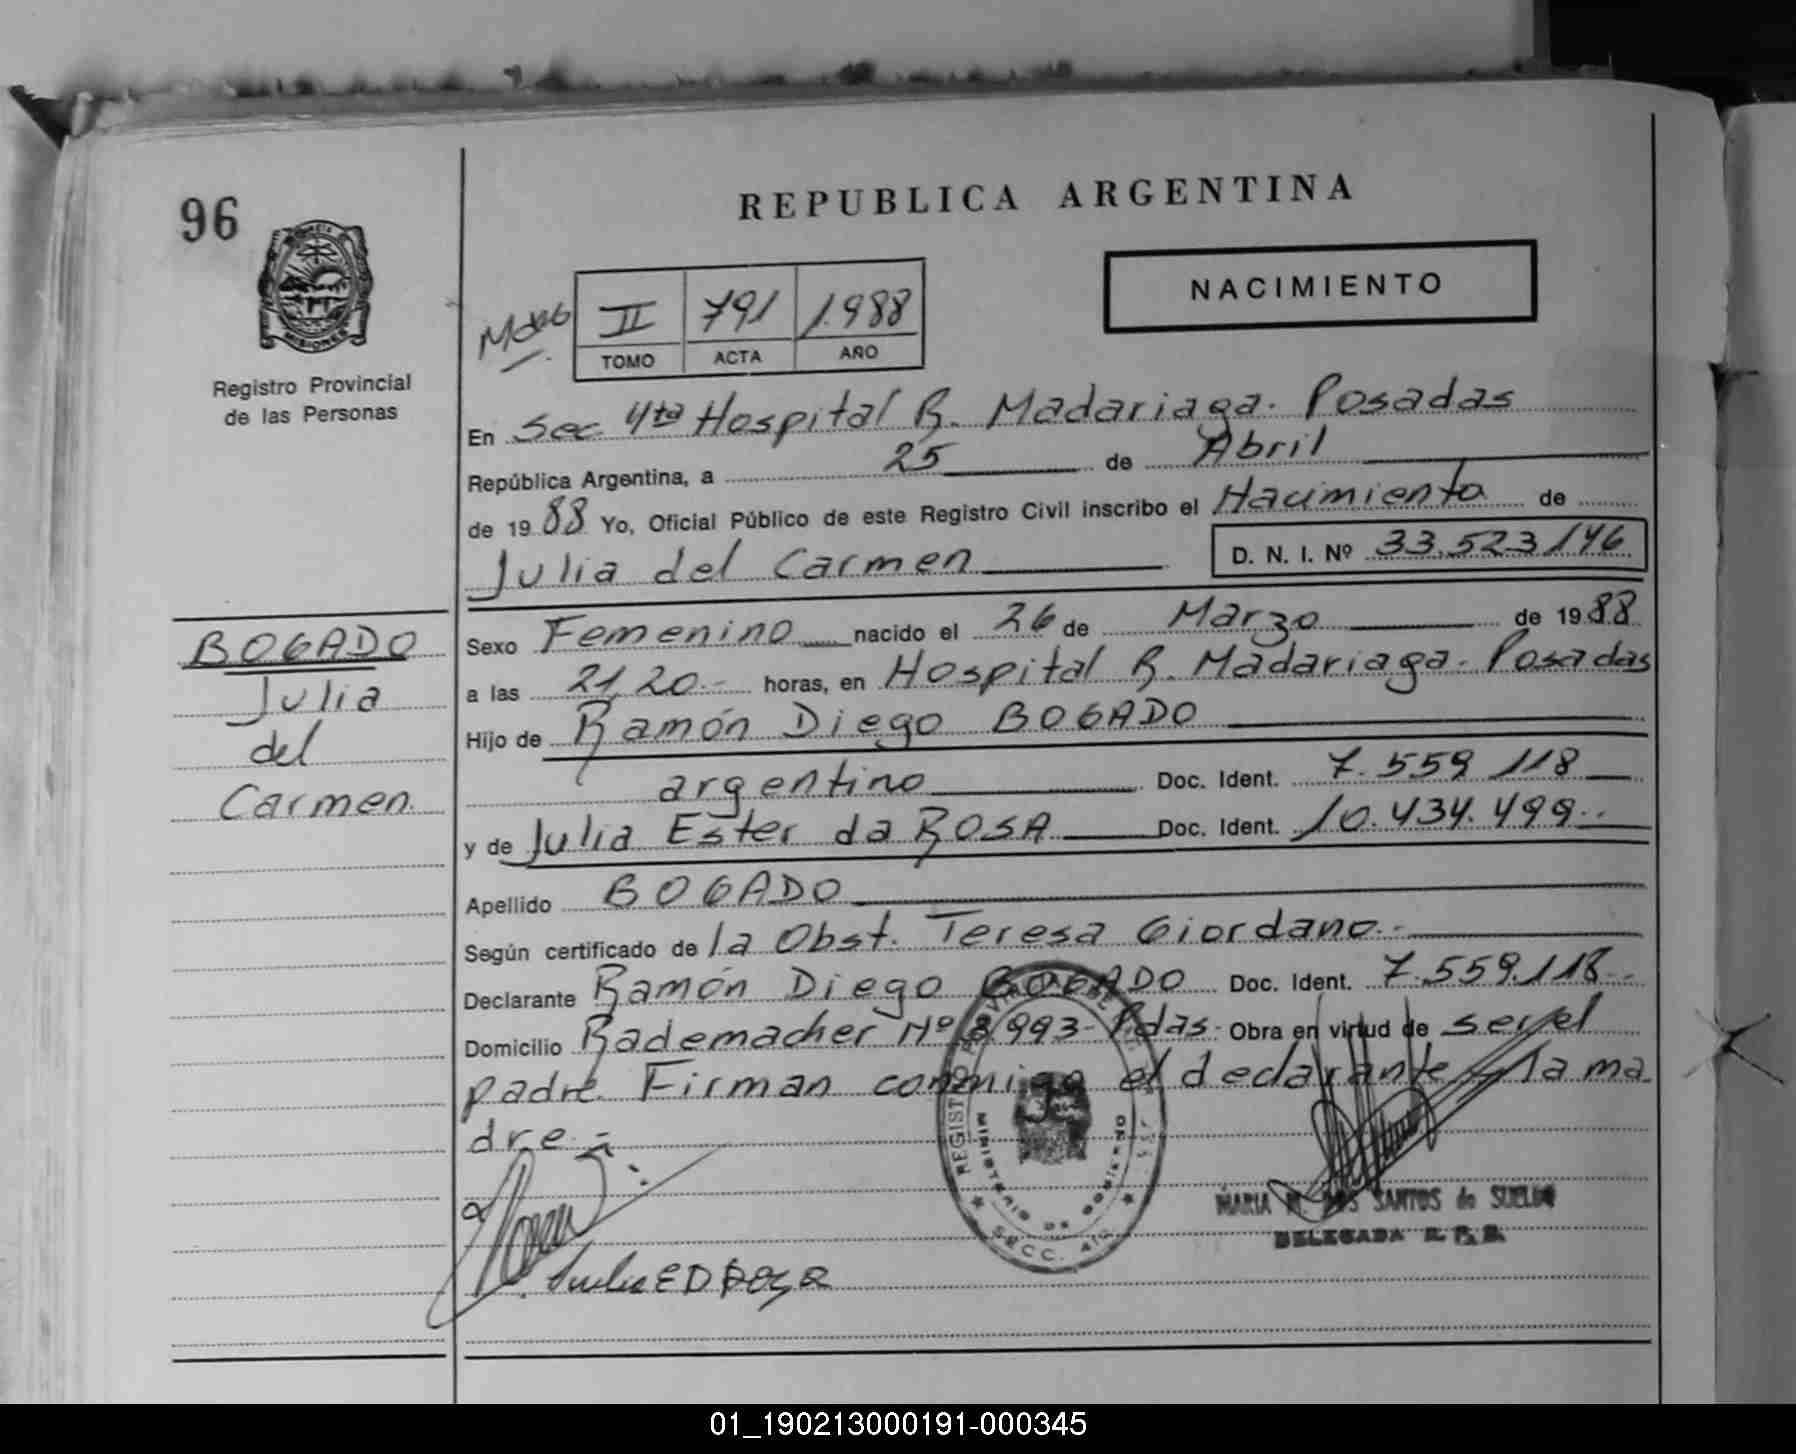 96
REPUBLICA ARGENTINA
MISIONES
Registro Provincial
de las Personas
II 791 1.988
TOMO ACTA AÑO
NACIMIENTO
En Sec 4ta Hospital R. Madariaga. Posadas
República Argentina, a 25 de Abril
de 1988 Yo, Oficial Público de este Registro Civil inscribo el Nacimiento de
Julia del Carmen D. N. I. Nº 33.523.146
BOGADO
Julia
del
Carmen.
Sexo Femenino nacido el 26 de Marzo de 1988
a las 21,20.- horas, en Hospital R. Madariaga. Posadas
Hijo de Ramón Diego BOGADO
argentino Doc. Ident. 7.559.118
y de Julia Ester da ROSA Doc. Ident. 10.434.499..
Apellido BOGADO
Según certificado de la Obst. Teresa Giordano.-
Declarante Ramón Diego BOGADO Doc. Ident. 7.559.118.-
Domicilio Rademacher Nº 3.993- Pdas. Obra en virtud de ser el
padre. Firman conmigo el declarante y la ma
dre.-
REGISTRO PROVINCIAL DE
MINISTERIO DE GOBIERNO
SECC. 4ta
MARIA M. DOS SANTOS de SUELDO
DELEGADA R. P. P.
Julia E D Rosa
01_190213000191-000345